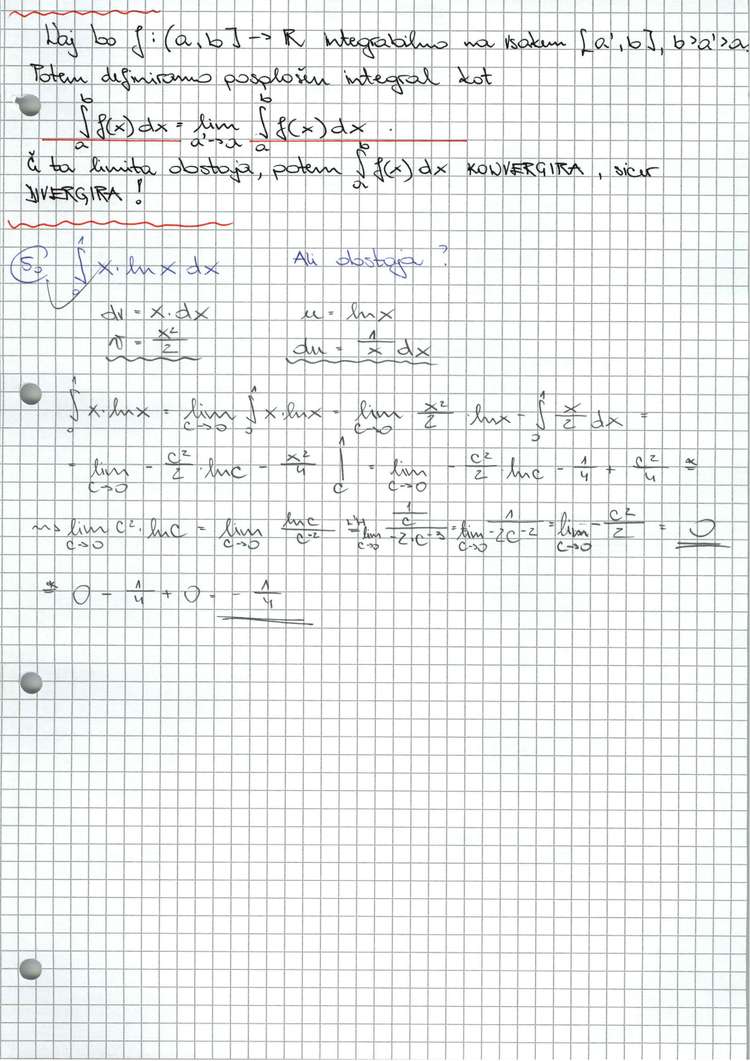 Naj bo f: (a, b] → ℝ integrabilno na vsakem [a', b], b>a'>a.
Potem definiramo posplošen integral kot
∫_a^b f(x) dx = lim_{a'→a} ∫_a^b f(x) dx.
Č ta limita obstaja, potem ∫_a^b f(x) dx KONVERGIRA, sicer
DIVERGIRA!
5. ∫_0^1 x·ln x dx Ali obstaja?
dv = x·dx u = ln x
v = x²/2 du = 1/x dx
∫_0^1 x·lnx = lim_{c→0} ∫_0^1 x·lnx = lim_{c→0} x²/2 · lnx - ∫_0^1 x/2 dx =
= lim_{c→0} - c²/2 · lnc - x²/4 |_c^1 = lim_{c→0} - c²/2 lnc - 1/4 + c²/4 *=
~> lim_{c→0} c²·lnc = lim_{c→0} lnc/c^{-2} =^{L'H} lim_{c→0} (1/c)/(-2·c^{-3}) = lim_{c→0} 1/(-2c^{-2}) = lim_{c→0} -c²/2 = 0
*= 0 - 1/4 + 0 = - 1/4